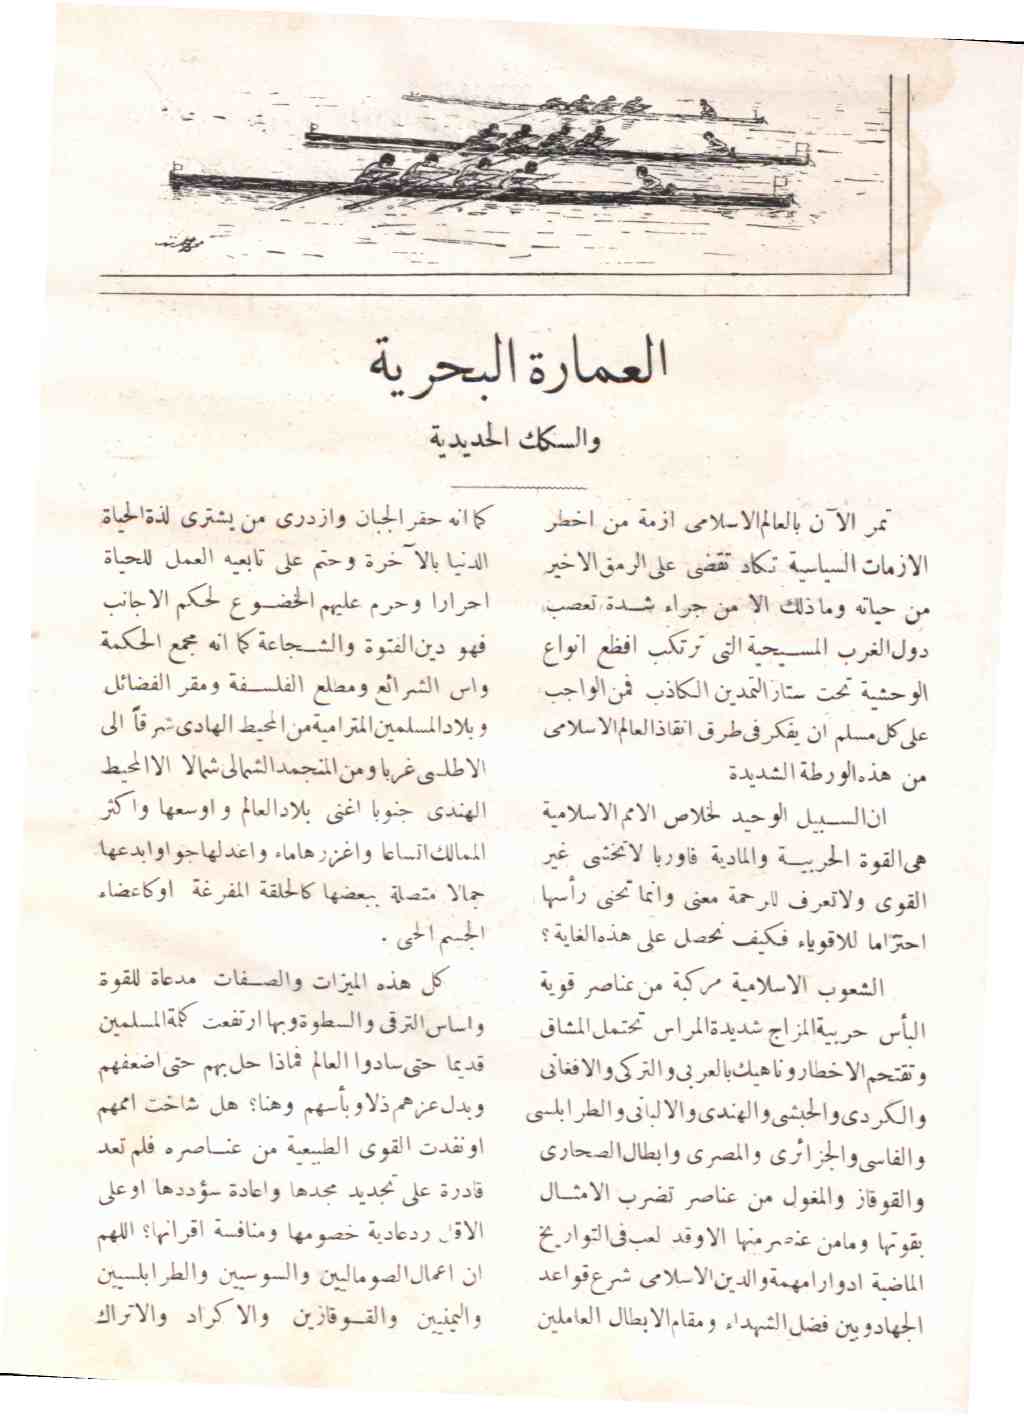 العمارة البحرية
والسكك الحديدية
تمر الآن بالعالم الاسلامى ازمة من اخطر
الازمات السياسية تكاد تقضى على الرمق الاخير
من حياته وما ذلك الا من جراء شدة تعصب
دول الغرب المسيحية التى ترتكب افظع انواع
الوحشية تحت ستار التمدين الكاذب فمن الواجب
على كل مسلم ان يفكر فى طرق انقاذ العالم الاسلامى
من هذه الورطة الشديدة
ان السبيل الوحيد لخلاص الامم الاسلامية
هى القوة الحربية والمادية فاوربا لا تخشى غير
القوى ولا تعرف للرحمة معنى وانما تحنى رأسها
احتراما للاقوياء فكيف نحصل على هذه الغاية ؟
الشعوب الاسلامية مركبة من عناصر قوية
البأس حربية المزاج شديدة المراس تحتمل المشاق
وتقتحم الاخطار وناهيك بالعربى والتركى والافغانى
والكردى والحبشى والهندى والالبانى والطرابلسى
والفاسى والجزائرى والمصرى وابطال الصحارى
والقوقاز والمغول من عناصر تضرب الامثال
بقوتها وما من عنصر منها الا وقد لعب فى التواريخ
الماضية ادوارا مهمة والدين الاسلامى شرع قواعد
الجهاد وبين فضل الشهداء ومقام الابطال العاملين
كما انه حقر الجبان وازدرى من يشترى لذة الحياة
الدنيا بالآخرة وحتم على تابعيه العمل للحياة
احرارا وحرم عليهم الخضوع لحكم الاجانب
فهو دين الفتوة والشجاعة كما انه مجمع الحكمة
واس الشرائع ومطلع الفلسفة ومقر الفضائل
وبلاد المسلمين المترامية من المحيط الهادى شرقاً الى
الاطلسى غربا ومن المتجمد الشمالى شمالا الا المحيط
الهندى جنوبا اغنى بلاد العالم واوسعها واكثر
الممالك اتساعا واغزرها ماء واعدلها جوا وابدعها
جمالا متصلة ببعضها كالحلقة المفرغة او كاعضاء
الجسم الحى .
كل هذه الميزات والصفات مدعاة للقوة
واساس الترقى والسطوة وبها ارتفعت كلمة المسلمين
قديما حتى سادوا العالم فماذا حل بهم حتى اضعفهم
وبدل عزهم ذلا وبأسهم وهنا؟ هل شاخت اممهم
او نفدت القوى الطبيعية من عناصره فلم تعد
قادرة على تجديد مجدها واعادة سؤددها او على
الاقل رد عادية خصومها ومنافسة اقرانها؟ اللهم
ان اعمال الصوماليين والسوسيين والطرابلسيين
واليمنيين والقوقازين والاكراد والاتراك